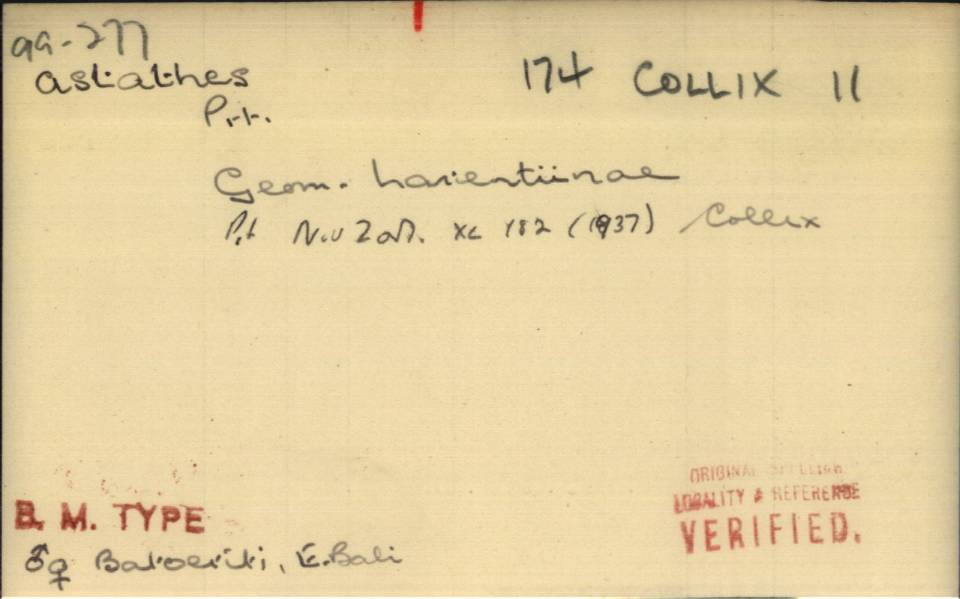 99-277
astathes
174 COLLIX 11
Prt.
Geom. Larentiinae
Prt Nov Zool. XL 182 (1937) Collix
ORIGINAL SPELLING
LOCALITY & REFERENCE
VERIFIED.
B. M. TYPE
♂♀ Batoeriti, E. Bali